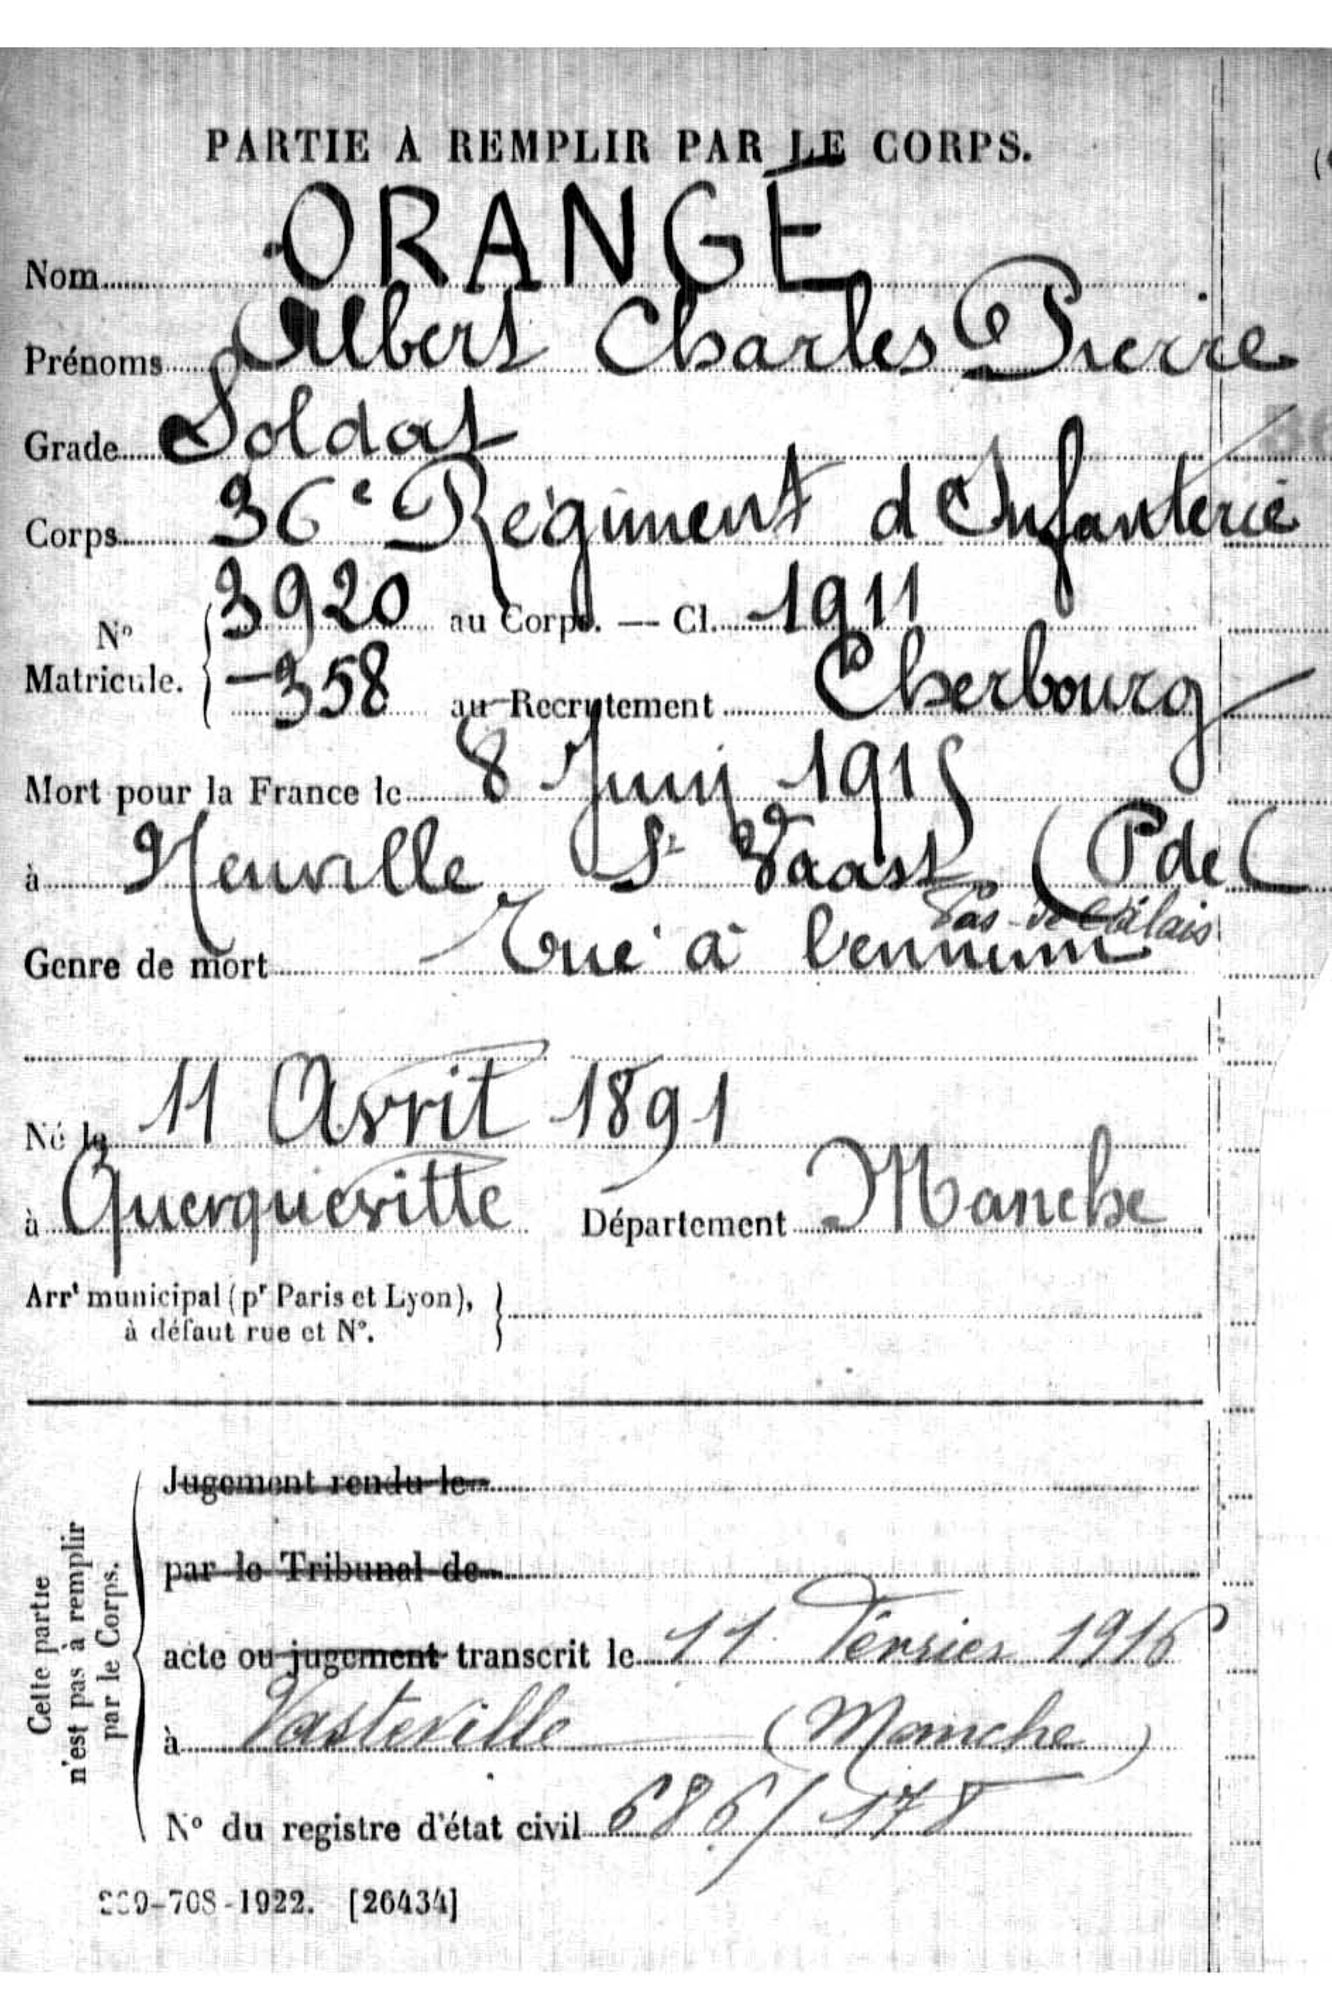 PARTIE À REMPLIR PAR LE CORPS.
Nom ORANGÉ
Prénoms Albert Charles Pierre
Grade Soldat
Corps 36e Régiment d Infanterie
N° Matricule. 3920 au Corps. — Cl. 1911
358 au Recrutement Cherbourg
Mort pour la France le 8 Juin 1915
à Neuville St Vaast (P de C
Pas-de-Calais
Genre de mort Tué à l'ennemi
Né le 11 Avril 1891
à Querqueville Département Manche
Arrt municipal (pr Paris et Lyon),
à défaut rue et N°.
Cette partie
n'est pas à remplir
par le Corps.
Jugement rendu le
par le Tribunal de
acte ou jugement transcrit le 11 Février 1916
à Vasteville (Manche)
N° du registre d'état civil 686/178
-708-1922. [26434]